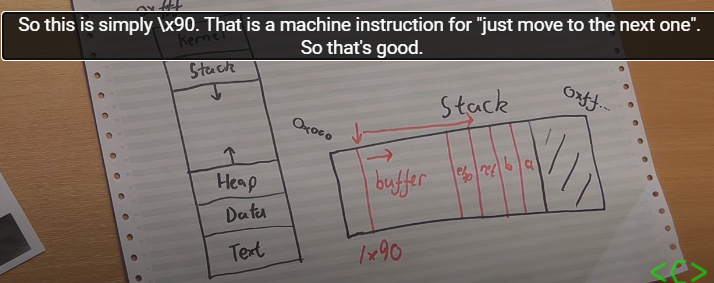 So this is simply \x90. That is a machine instruction for "just move to the next one".
So that's good.
0xfff
Kernel
Stack
Heap
Data
Text
Stack
0x000
0xff...
buffer
ebp
ret
b
a
\x90
<C>